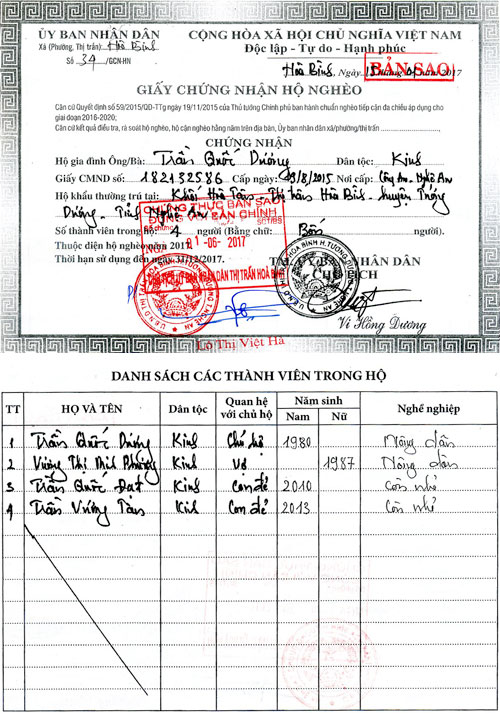 ỦY BAN NHÂN DÂN
Xã (Phường, Thị trấn): Hòa Bình
Số 34 /GCN-HN
CỘNG HÒA XÃ HỘI CHỦ NGHĨA VIỆT NAM
Độc lập - Tự do - Hạnh phúc
BẢN SAO
Hòa Bình, Ngày 15 tháng 01 năm 2017
GIẤY CHỨNG NHẬN HỘ NGHÈO
Căn cứ Quyết định số 59/2015/QĐ-TTg ngày 19/11/2015 của Thủ tướng Chính phủ ban hành chuẩn nghèo tiếp cận đa chiều áp dụng cho
giai đoạn 2016-2020;
Căn cứ kết quả điều tra, rà soát hộ nghèo, hộ cận nghèo hằng năm trên địa bàn, Ủy ban nhân dân xã/phường/thị trấn
CHỨNG NHẬN
Hộ gia đình Ông/Bà: Trần Quốc Dương Dân tộc: Kinh
Giấy CMND số: 182132586 Cấp ngày: 03/8/2015 Nơi cấp: Công An - Nghệ An
Hộ khẩu thường trú tại: Khối Hòa Tân - Thị trấn Hòa Bình - huyện Tương
Dương - Tỉnh Nghệ An
CHỨNG THỰC BẢN SAO
ĐÚNG VỚI BẢN CHÍNH
Số thành viên trong hộ: 4 người (Bằng chữ: Bốn người).
Thuộc diện hộ nghèo năm 2017
01-06-2017
Thời hạn sử dụng đến ngày 31/12/2017.
TM. ỦY BAN NHÂN DÂN
CHỦ TỊCH
Vi Hồng Dương
Lô Thị Việt Hà
DANH SÁCH CÁC THÀNH VIÊN TRONG HỘ
TT HỌ VÀ TÊN Dân tộc Quan hệ với chủ hộ Năm sinh Nam Nữ Nghề nghiệp
1 Trần Quốc Dương Kinh Chủ hộ 1980 Nông dân
2 Vương Thị Phương Kinh Vợ 1987 Nông dân
3 Trần Quốc Đạt Kinh Con đẻ 2010 Còn nhỏ
4 Trần Vương Tân Kinh Con đẻ 2013 Còn nhỏ